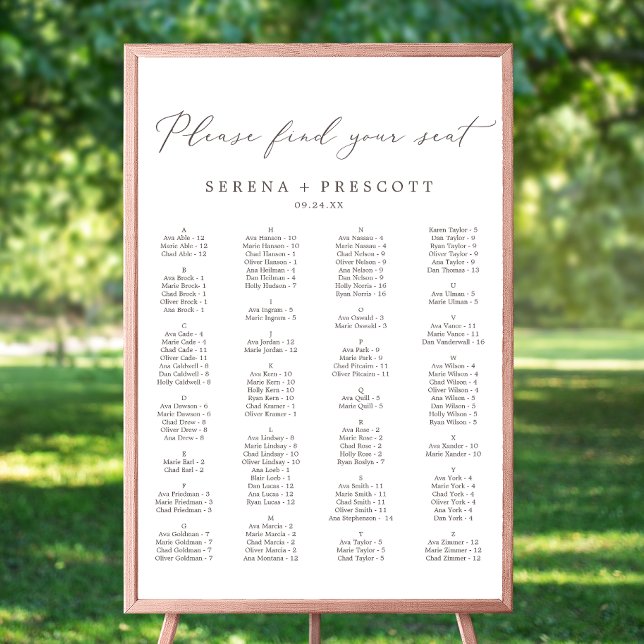 Please find your seat
SERENA + PRESCOTT
09.24.XX
A
Ava Able - 12
Marie Able - 12
Chad Able - 12
B
Ava Brock - 1
Marie Brock- 1
Chad Brock - 1
Oliver Brock - 1
Ana Brock - 1
C
Ava Cade - 4
Marie Cade - 4
Chad Cade - 11
Oliver Cade- 11
Ana Caldwell - 8
Dan Caldwell - 8
Holly Caldwell - 8
D
Ava Dawson - 6
Marie Dawson - 6
Chad Drew - 8
Oliver Drew - 8
Ana Drew - 8
E
Marie Earl - 2
Chad Earl - 2
F
Ava Friedman - 3
Marie Friedman - 3
Chad Friedman - 3
G
Ava Goldman - 7
Marie Goldman - 7
Chad Goldman - 7
Oliver Goldman - 7
H
Ava Hanson - 10
Marie Hanson - 10
Chad Hanson - 1
Oliver Hanson - 1
Ana Heilman - 4
Dan Heilman - 4
Holly Hudson - 7
I
Ava Ingram - 5
Marie Ingram - 5
J
Ava Jordan - 12
Marie Jordan - 12
K
Ava Kern - 10
Marie Kern - 10
Holly Kern - 10
Ryan Kern - 10
Chad Kramer - 1
Oliver Kramer - 1
L
Ava Lindsay - 8
Marie Lindsay - 8
Chad Lindsay - 10
Oliver Lindsay - 10
Ana Loeb - 1
Blair Loeb - 1
Dan Lucas - 12
Ana Lucas - 12
Ryan Lucas - 12
M
Ava Marcia - 2
Marie Marcia - 2
Chad Marcia - 2
Oliver Marcia - 2
Ana Montana - 12
N
Ava Nassau - 4
Marie Nassau - 4
Chad Nelson - 9
Oliver Nelson - 9
Ana Nelson - 9
Dan Nelson - 9
Holly Norris - 16
Ryan Norris - 16
O
Ava Oswald - 3
Marie Oswald - 3
P
Ava Park - 9
Marie Park - 9
Chad Pitcairn - 11
Oliver Pitcairn - 11
Q
Ava Quill - 5
Marie Quill - 5
R
Ava Rose - 2
Marie Rose - 2
Chad Rose - 2
Holly Rose - 7
Ryan Roslyn - 7
S
Ava Smith - 11
Marie Smith - 11
Chad Smith - 11
Oliver Smith - 11
Ana Stephenson - 14
T
Ava Taylor - 5
Marie Taylor - 5
Chad Taylor - 5
Karen Taylor - 5
Dan Taylor - 9
Ryan Taylor - 9
Oliver Taylor - 9
Ana Taylor - 9
Dan Thomas - 13
U
Ava Ulman - 5
Marie Ulman - 5
V
Ava Vance - 11
Marie Vance - 11
Dan Vanderwall - 16
W
Ava Wilson - 4
Marie Wilson - 4
Chad Wilson - 4
Oliver Wilson - 4
Ana Wilson - 5
Dan Wilson - 5
Holly Wilson - 5
Ryan Wilson - 5
X
Ava Xander - 10
Marie Xander - 10
Y
Ava York - 4
Marie York - 4
Chad York - 4
Oliver York - 4
Ana York - 4
Dan York - 4
Z
Ava Zimmer - 12
Marie Zimmer - 12
Chad Zimmer - 12